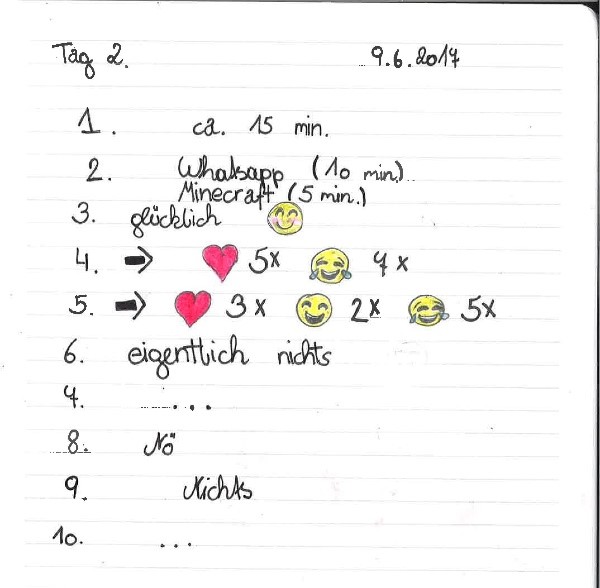 Tag 2. 9.6.2017
1. ca. 15 min.
2. Whatsapp (10 min.)
Minecraft (5 min.)
3. glücklich 😊
4. ➡ ❤ 5x 😂 7x
5. ➡ ❤ 3x 😄 2x 😂 5x
6. eigentlich nichts
7. ...
8. Nö
9. Nichts
10. ...